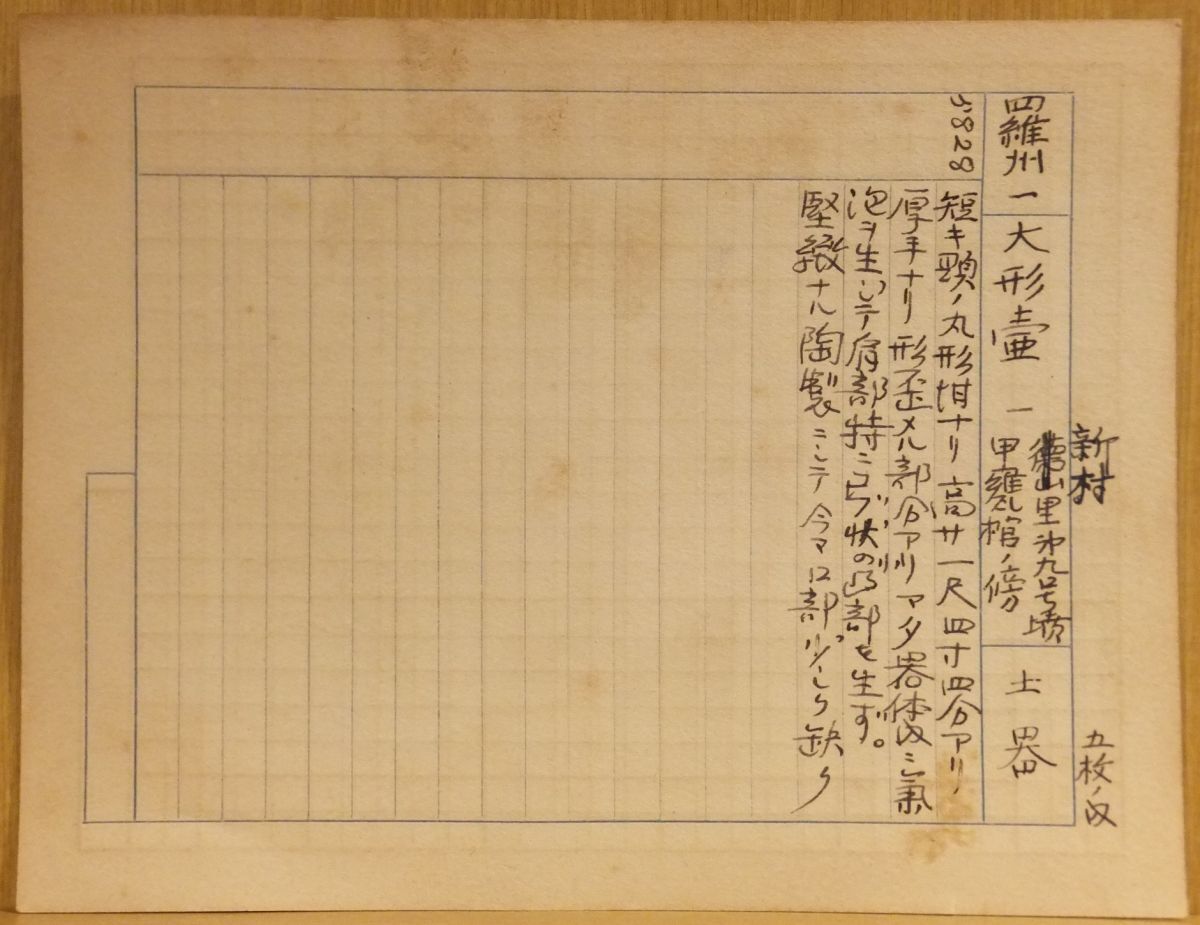 五枚ノ内
新村
四羅州一 大形壷 一 徳山里第九号墳 土器
甲甕棺ノ傍
5828
短キ頸ノ丸形坩ナリ 高サ一尺四寸四分アリ
厚手ナリ 形歪メル部分アリ マタ器体内ニ氣
泡ヲ生ジテ肩部特ニコブ状の凸部を生ず。
堅緻ナル陶製ニシテ今マ口部少シク缺ク